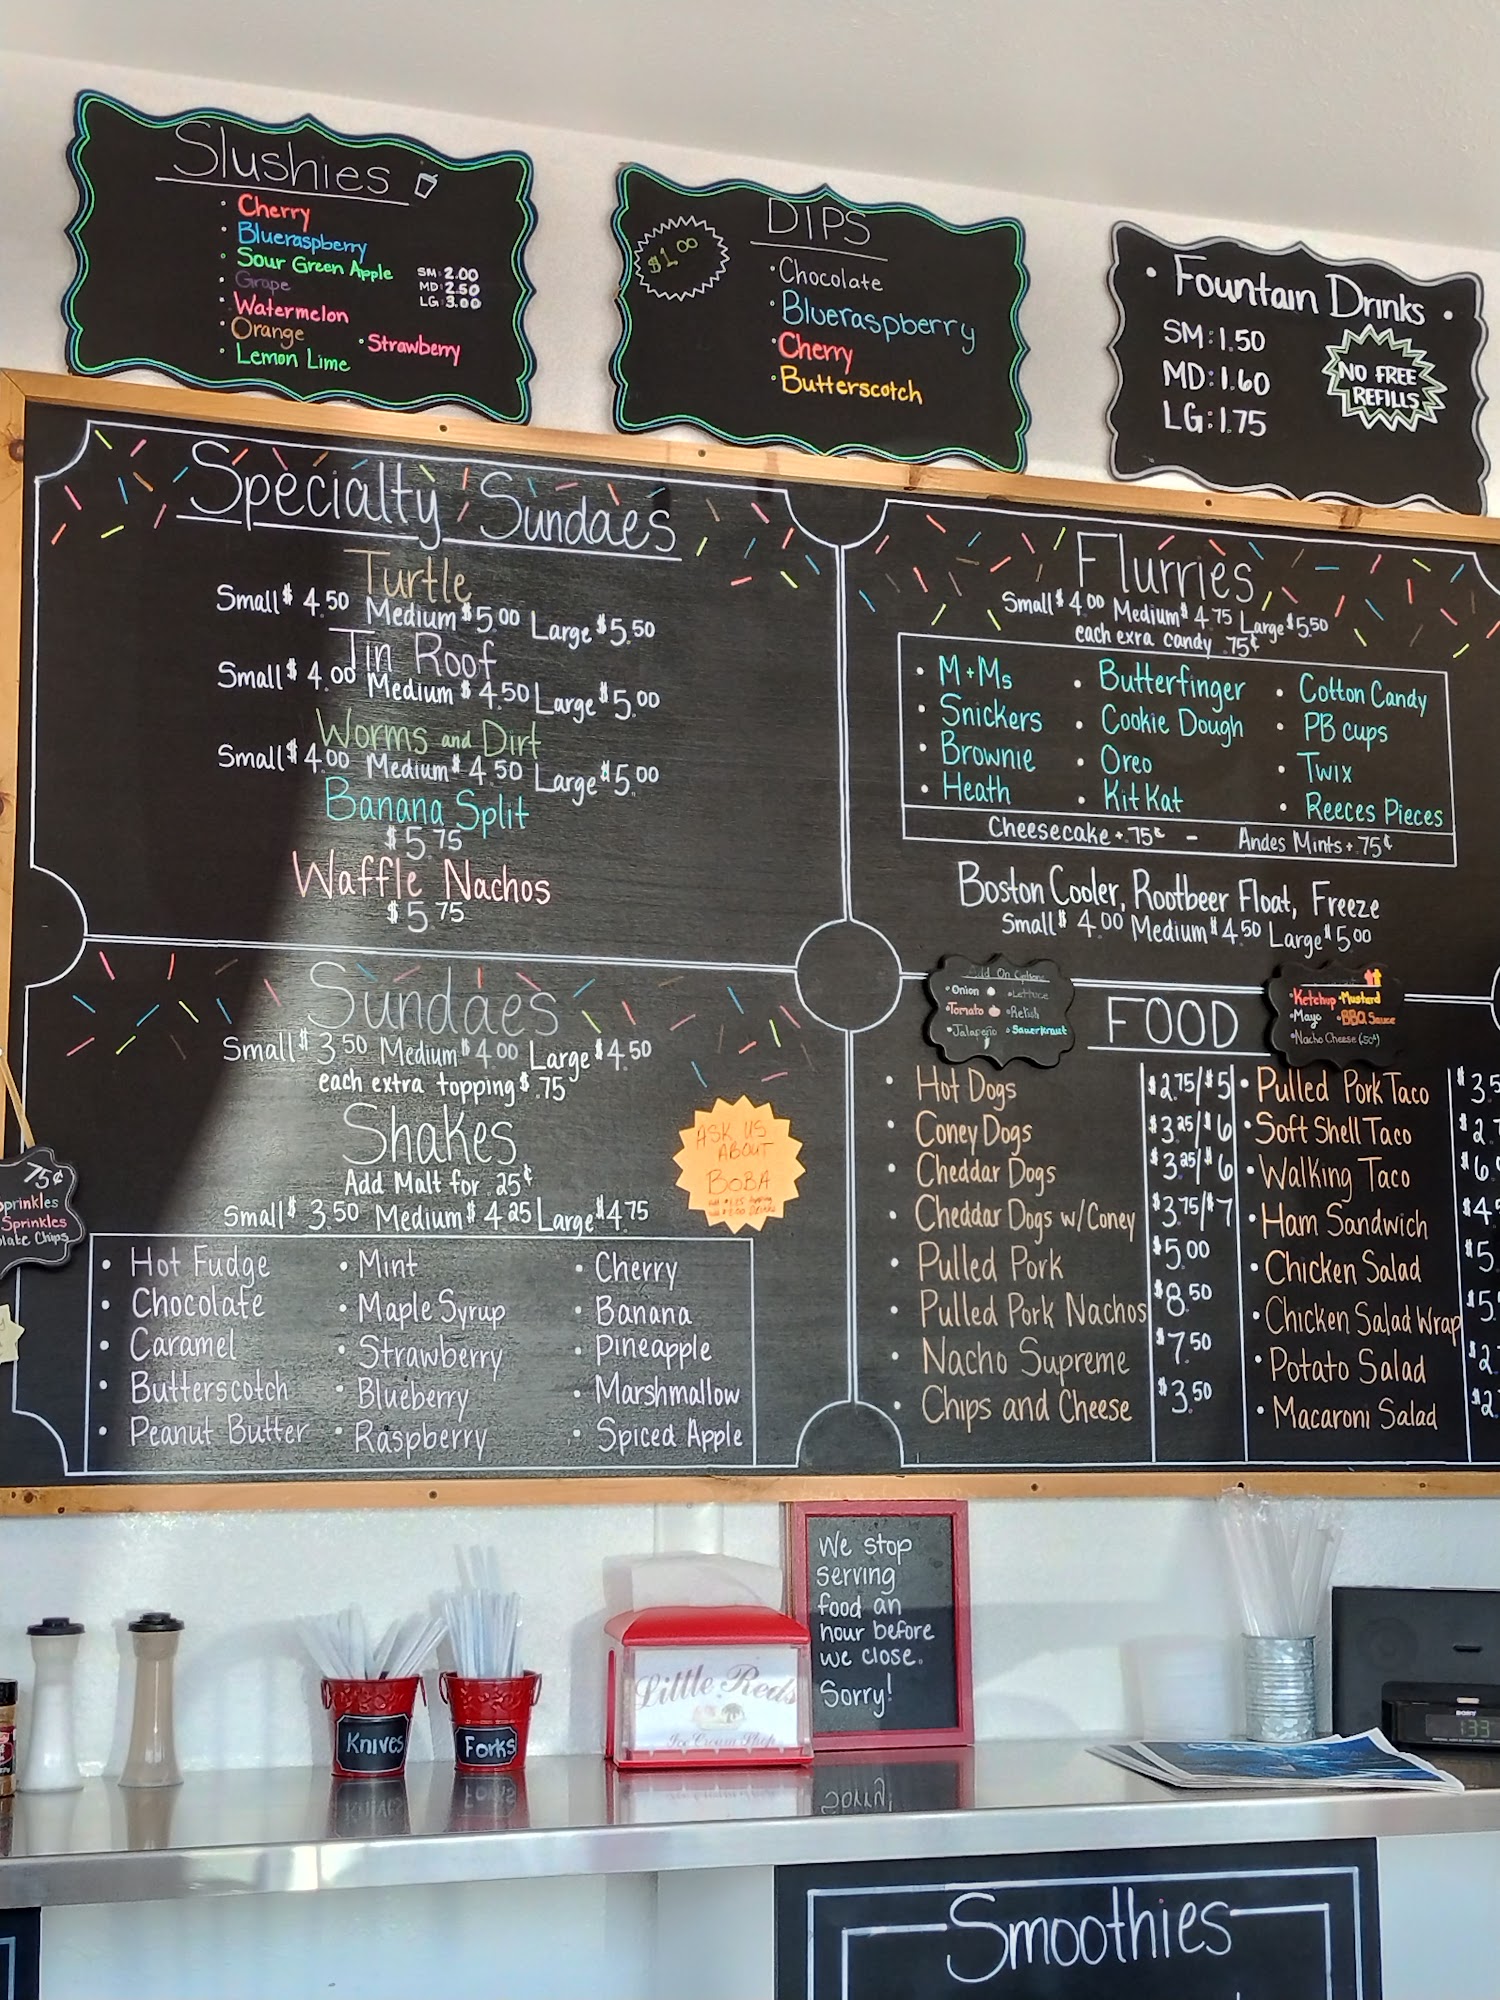 Slushies
• Cherry
• Blueraspberry
• Sour Green Apple
• Grape
• Watermelon
• Orange
• Lemon Lime
• Strawberry
SM: 2.00
MD: 2.50
LG: 3.00
DIPS
$1.00
• Chocolate
• Blueraspberry
• Cherry
• Butterscotch
• Fountain Drinks •
SM: 1.50
MD: 1.60
LG: 1.75
NO FREE
REFILLS
Specialty Sundaes
Turtle
Small $4.50 Medium $5.00 Large $5.50
Tin Roof
Small $4.00 Medium $4.50 Large $5.00
Worms and Dirt
Small $4.00 Medium $4.50 Large $5.00
Banana Split
$5.75
Waffle Nachos
$5.75
Flurries
Small $4.00 Medium $4.75 Large $5.50
each exra candy .75¢
• M+Ms
• Snickers
• Brownie
• Heath
• Butterfinger
• Cookie Dough
• Oreo
• Kit Kat
• Cotton Candy
• PB cups
• Twix
• Reeces Pieces
Cheesecake +.75¢ - Andes Mints +.75¢
Boston Cooler, Rootbeer Float, Freeze
Small $4.00 Medium $4.50 Large $5.00
Sundaes
Small $3.50 Medium $4.00 Large $4.50
each extra topping $.75
Shakes
Add Malt for .25¢
Small $3.50 Medium $4.25 Large $4.75
ASK US
ABOUT
BOBA
75¢
Sprinkles
• Hot Fudge
• Chocolate
• Caramel
• Butterscotch
• Peanut Butter
• Mint
• Maple Syrup
• Strawberry
• Blueberry
• Raspberry
• Cherry
• Banana
• Pineapple
• Marshmallow
• Spiced Apple
Add On Options
• Onion • Lettuce
• Tomato • Relish
• Jalapeño • Sauerkraut
FOOD
• Ketchup • Mustard
• Mayo • BBQ Sauce
• Nacho Cheese (.50¢)
• Hot Dogs $2.75/$5
• Coney Dogs $3.25/$6
• Cheddar Dogs $3.25/$6
• Cheddar Dogs w/Coney $3.75/$7
• Pulled Pork $5.00
• Pulled Pork Nachos $8.50
• Nacho Supreme $7.50
• Chips and Cheese $3.50
• Pulled Pork Taco
• Soft Shell Taco
• Walking Taco
• Ham Sandwich
• Chicken Salad
• Chicken Salad Wrap
• Potato Salad
• Macaroni Salad
We stop
serving
food an
hour before
we close.
Sorry!
Knives
Forks
Little Reds
Ice Cream Shop
SONY
1:33
Smoothies